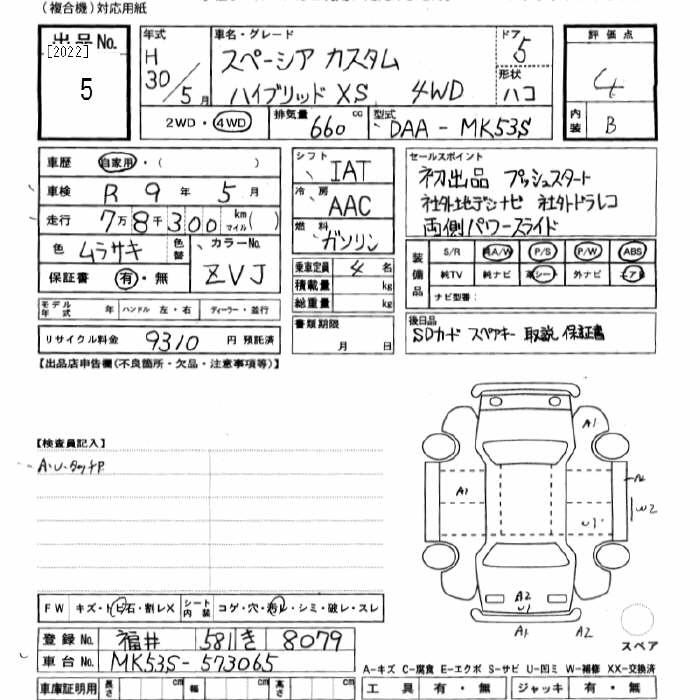 (複合機)対応用紙
出品No.
[2022]
5
年式
H
30/5月
車名・グレード
スペーシア カスタム
ハイブリッド XS 4WD
ドア
5
形状
ハコ
評価点
4
内装
B
2WD・4WD
排気量
660 cc
型式
DAA-MK53S
車歴 自家用・( )
車検 R 9年 5月
走行 7万8千300 km マイル( )
色 ムラサキ 色替 カラーNo.
ZVJ
保証書 有・無
シフト IAT
冷房 AAC
燃料 ガソリン
乗車定員 4名
積載量 kg
総重量 kg
書類期限
月 日
セールスポイント
初出品 プッシュスタート
社外地デジナビ 社外ドラレコ
両側パワースライド
装備品
S/R A/W P/S P/W ABS
純TV 純ナビ 革シート 外ナビ エアB
ナビ型番:
モデル年式 年 ハンドル 左・右 ディーラー・並行
リサイクル料金 9310 円 預託済
後日品
SDカード スペアキー 取説 保証書
【出品店申告欄(不良箇所・欠品・注意事項等)】
【検査員記入】
A・U・タッチP
A1
A1
A
U1
W2
A2
U1
A1 A2
スペア
FW キズ・トビ石・割レX シート内装 コゲ・穴・汚レ・シミ・破レ・スレ
登録No. 福井 581 き 8079
車台No. MK53S-573065
車庫証明用 長さ cm 幅 cm 高さ cm
A-キズ C-腐食 E-エクボ S-サビ U-凹ミ W-補修 XX-交換済
工具 有・無 ジャッキ 有・無